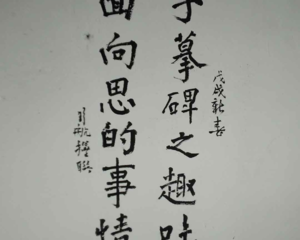 戊戌新春
子摹碑之趣味
面向思的事情